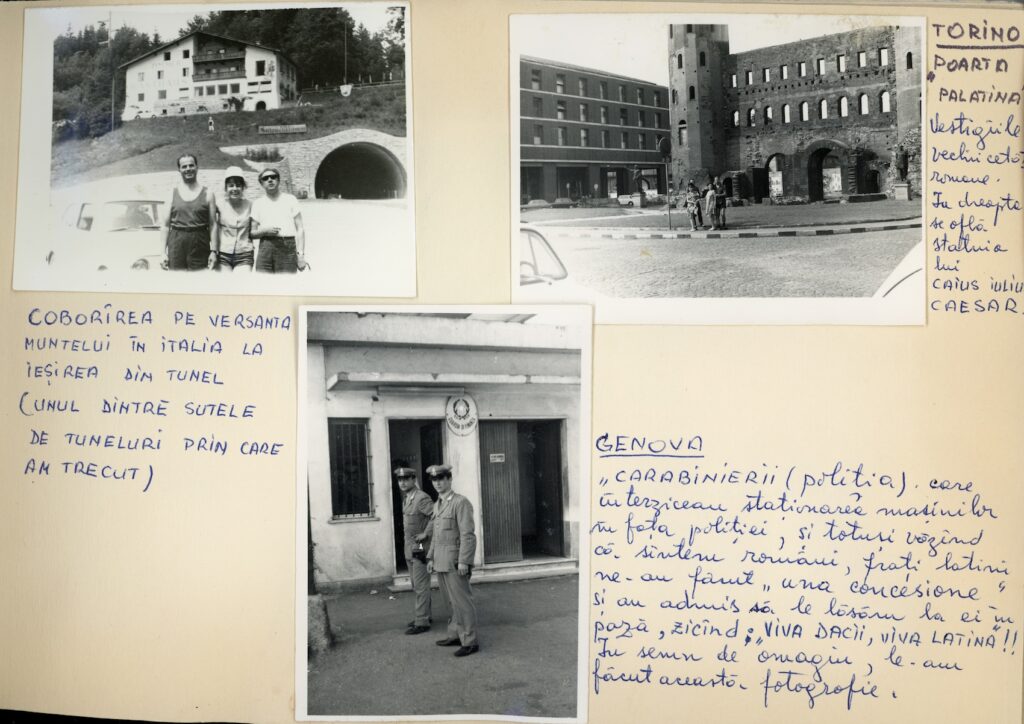 COBORÎREA PE VERSANTA
MUNTELUI ÎN ITALIA LA
IEȘIREA DIM TUNEL
(UNUL DINTRE SUTELE
DE TUNELURI PRIN CARE
AM TRECUT)
TORINO
POARTA
"PALATINA
Vestigiile
vechii cetăți
romane.
În dreapta
se află
statuia
lui
CAIUS IULIU
CAESAR.
GENOVA
„CARABINIERII (poliția). care
interziceau staționarea mașinilor
în fața poliției, și totuși văzînd
că sîntem români, frați latini
ne-au făcut „una concesione"
și au admis să le lăsăm la ei în
pază, zicînd: „VIVA DACII, VIVA LATINA"!!
În semn de omagiu, le-am
făcut această fotografie.